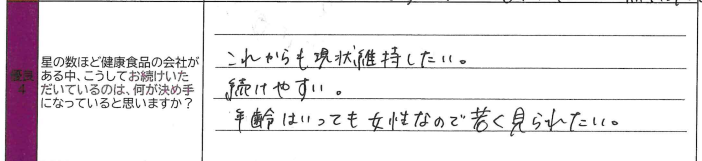 優先
4
星の数ほど健康食品の会社が
ある中、こうしてお続けいた
だいているのは、何が決め手
になっていると思いますか？
これからも現状維持したい。
続けやすい。
年齢はいっても女性なので若く見られたい。